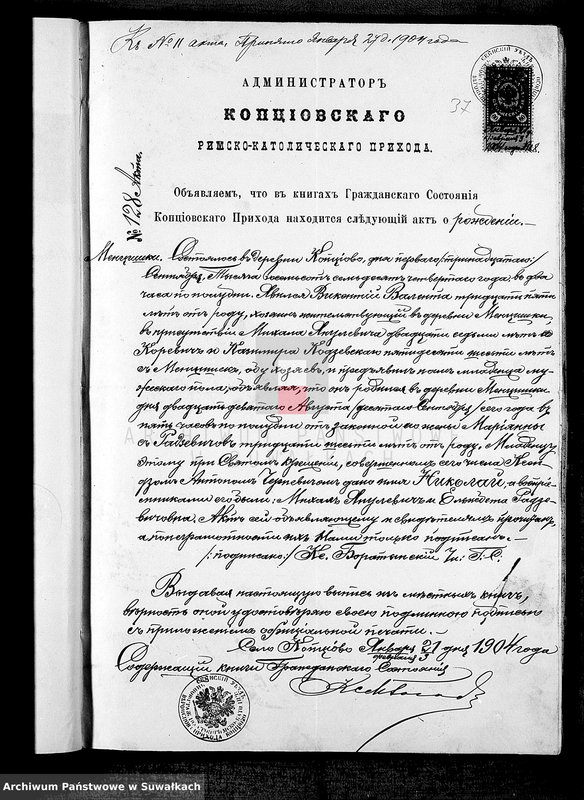 Къ № 11 акта, Принято Января 27 д. 1904 года
37
АДМИНИСТРАТОРЪ
КОПЦІОВСКАГО
РИМСКО-КАТОЛИЧЕСКАГО ПРИХОДА.
№ 128 Акта.
Объявляемъ, что въ книгахъ Гражданскаго Состоянія
Копціовскаго Прихода находится слѣдующій актъ о рожденіи.
Менцишки. Состоялось въ деревни Копціово, дня перваго /тринадцатаго/
Сентября, Тысяча восемьсотъ семьдесятъ четвертаго года, въ два
часа по полудни. Явился Викентій Валента тридцати пяти
лѣтъ отъ роду, хозяинъ жительствующій въ деревни Менцишки,
въ присутствіи Михала Янулевича двадцати седьми лѣтъ
Коревичъ и Казимира пятидесяти шести лѣтъ
съ Менцишекъ, обу хозяевъ, и предъявилъ намъ младенца му-
жескаго пола, объявляя, что онъ родился въ деревни Менцишки
дня двадцать девятаго Августа /десятаго Сентября/ сего года въ
пять часовъ по полудни отъ законной его жены Маріянны
съ Радзевичовъ тридцати шести лѣтъ отъ роду. Младенцу
этому при Святомъ крещеніи, совершенномъ его числа Ксен-
дзомъ Антономъ дано имя Николай, а воспрі-
емниками его были: Михалъ Янулевичъ и Ельжбета Радзе-
вичовна. Актъ сей объявляющему и свидѣтелямъ прочитанъ,
а по неграмотности ихъ Нами только подписанъ.
/:подписано:/ Кс. Боратынскій Чи. Г. С.
Выдавая настоящую выпись изъ мѣстныхъ книгъ,
вѣрность оной удостовѣряю своею подлинною подписью
съ приложеніемъ оффиціальной печати.
Село Копціово Января 21 дня 1904 года
Февраля 3
Содержащій книги Гражданскаго Состоянія
Archiwum Państwowe w Suwałkach